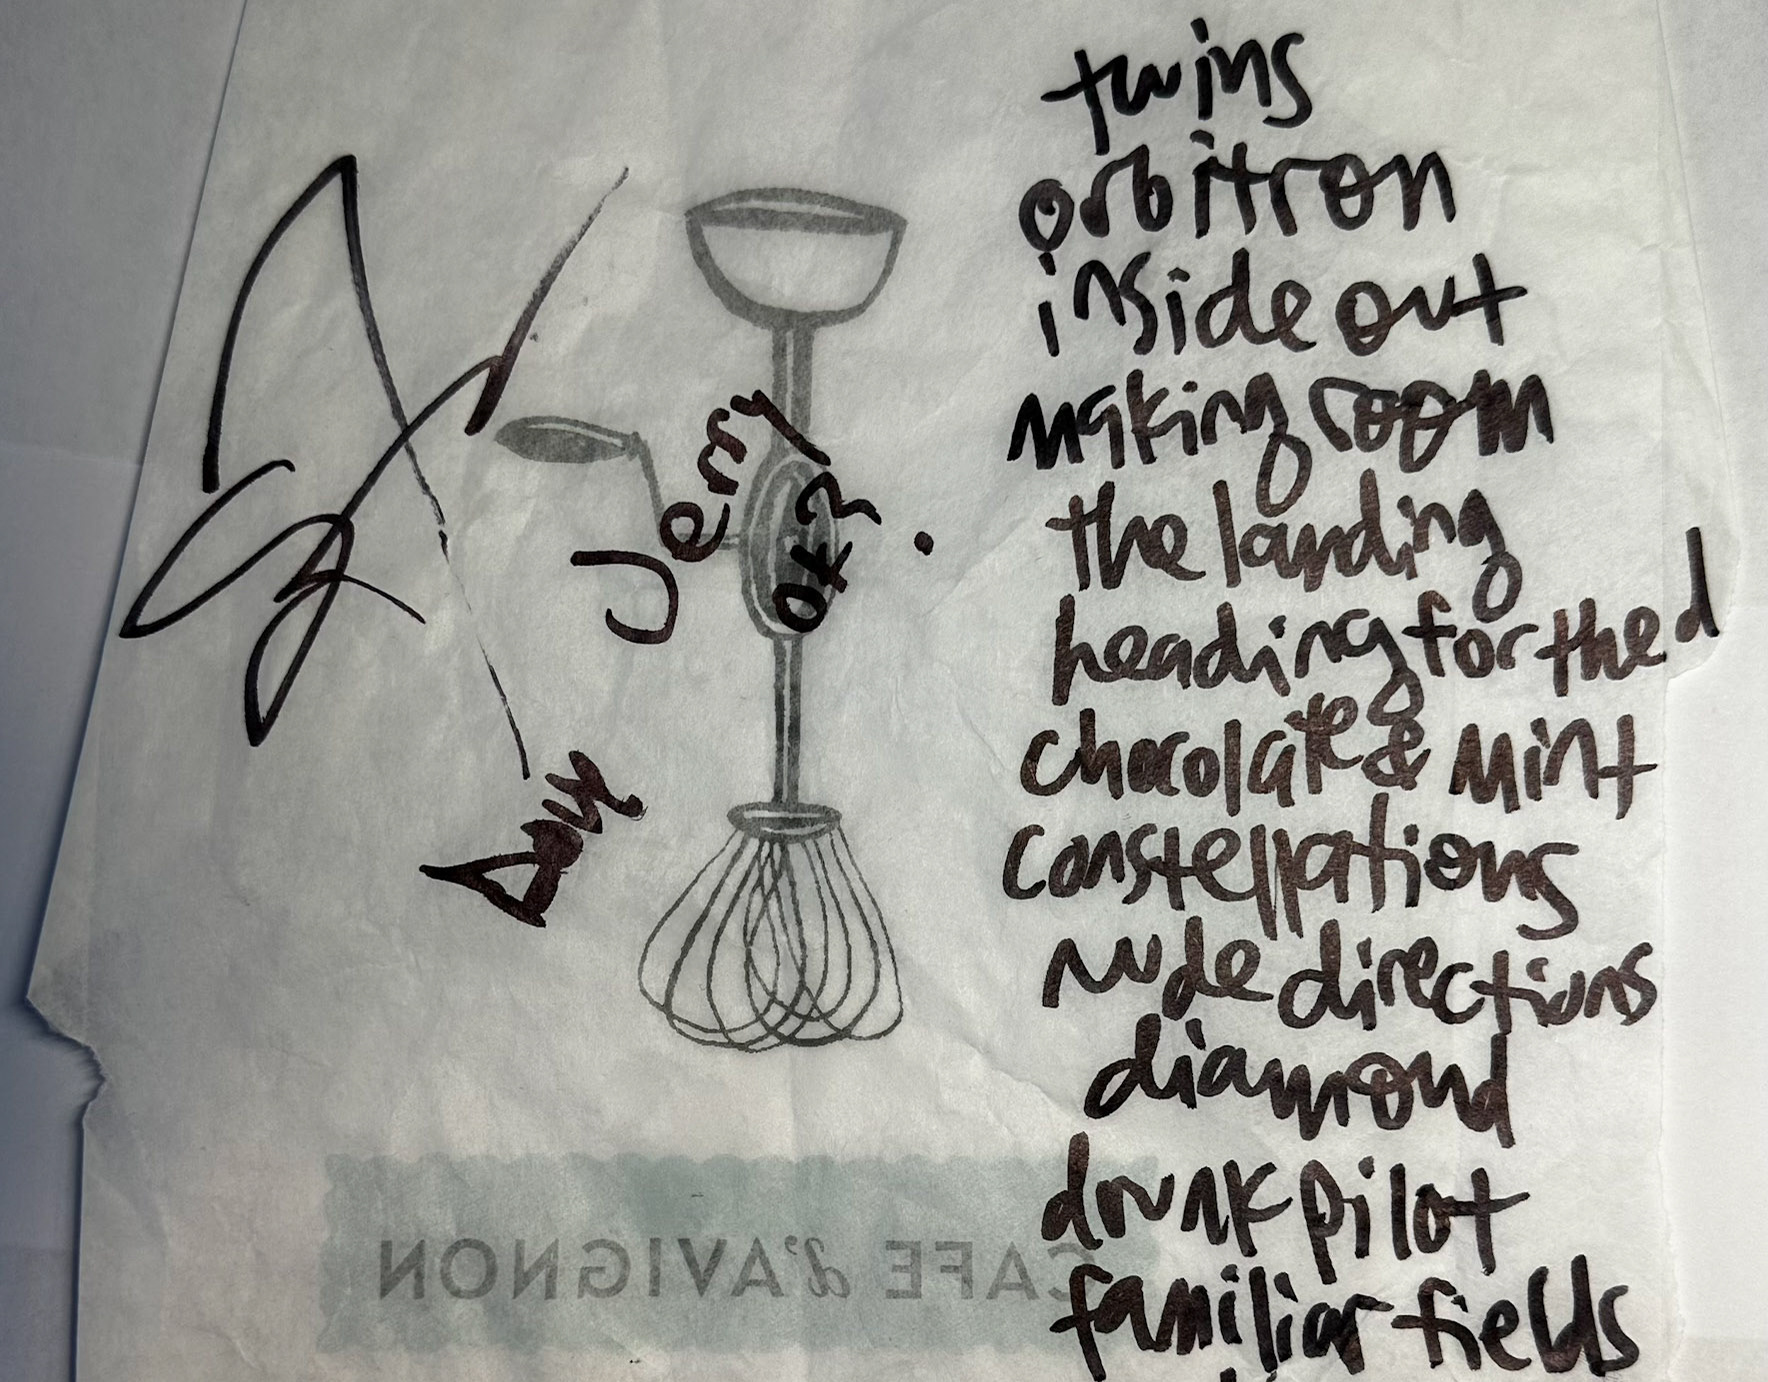 twins
orbitron
inside out
making room
the landing
heading for the d
chocolate & mint
constellations
nude directions
diamond
drunk pilot
familiar fields
Jerry
CAFE d'AVIGNON